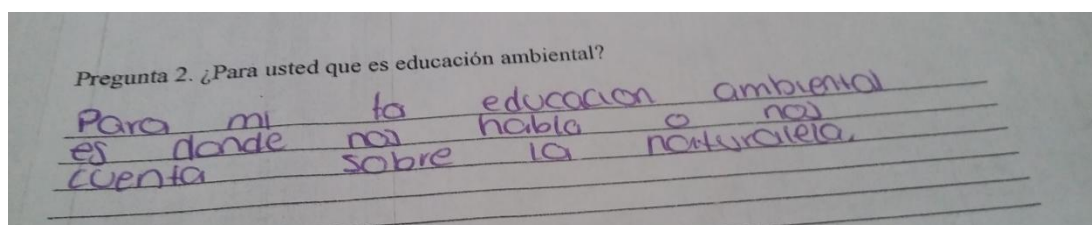 Pregunta 2. ¿Para usted que es educación ambiental?
Para mi la educacion ambiental
es donde nos habla o nos
cuenta sobre la naturaleza.